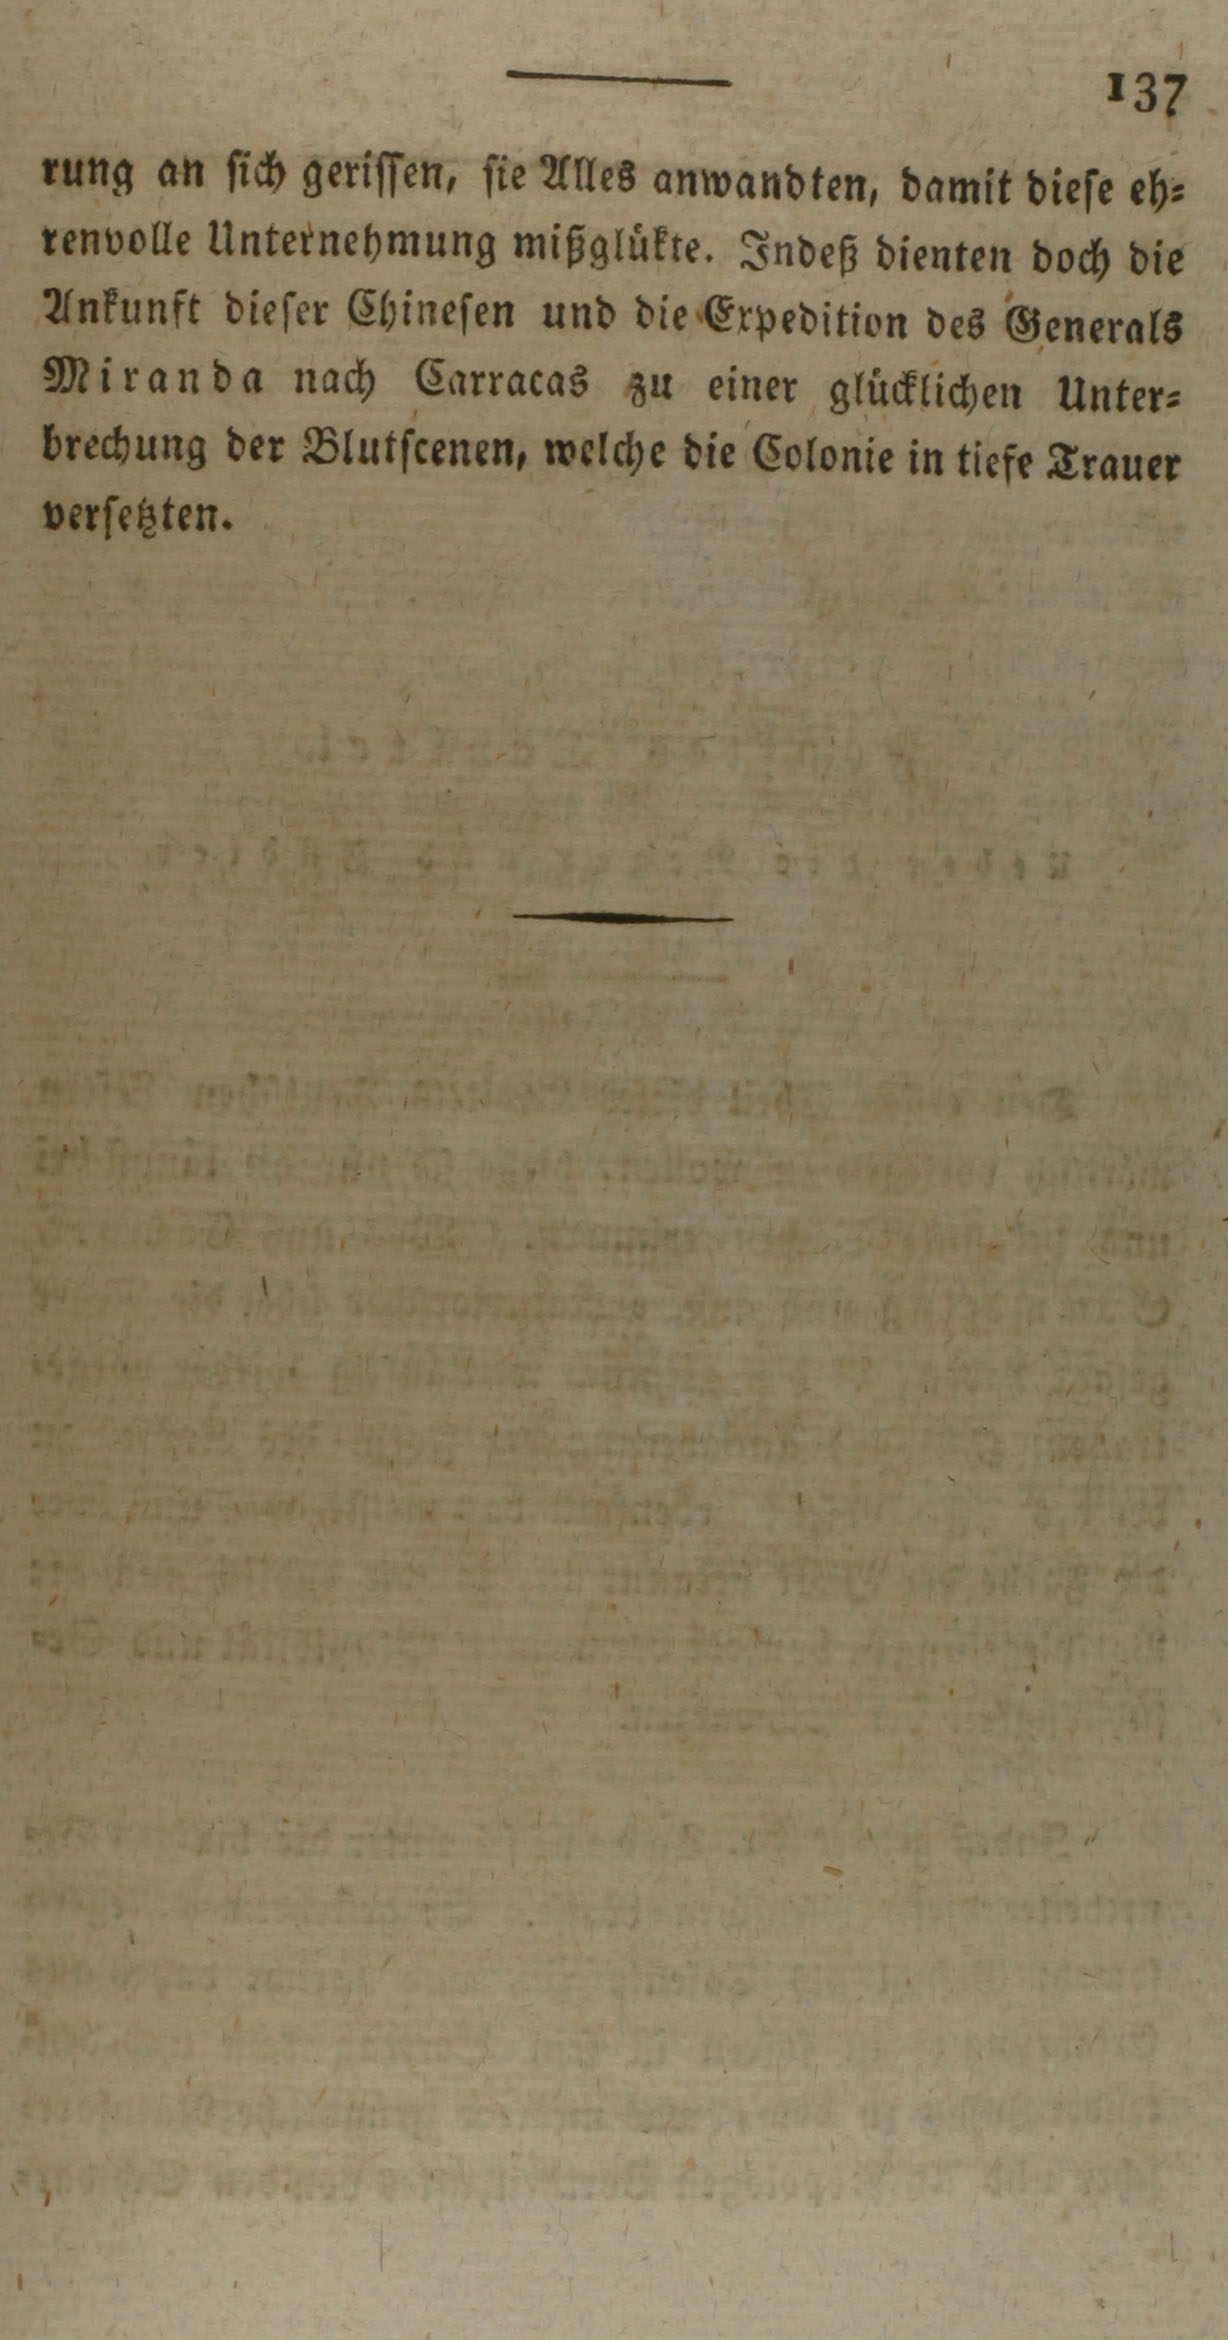 137
rung an sich gerissen, sie Alles anwandten, damit diese eh-
renvolle Unternehmung mißglükte. Indeß dienten doch die
Ankunft dieser Chinesen und die Expedition des Generals
Miranda nach Carracas zu einer glücklichen Unter-
brechung der Blutscenen, welche die Colonie in tiefe Trauer
versetzten.